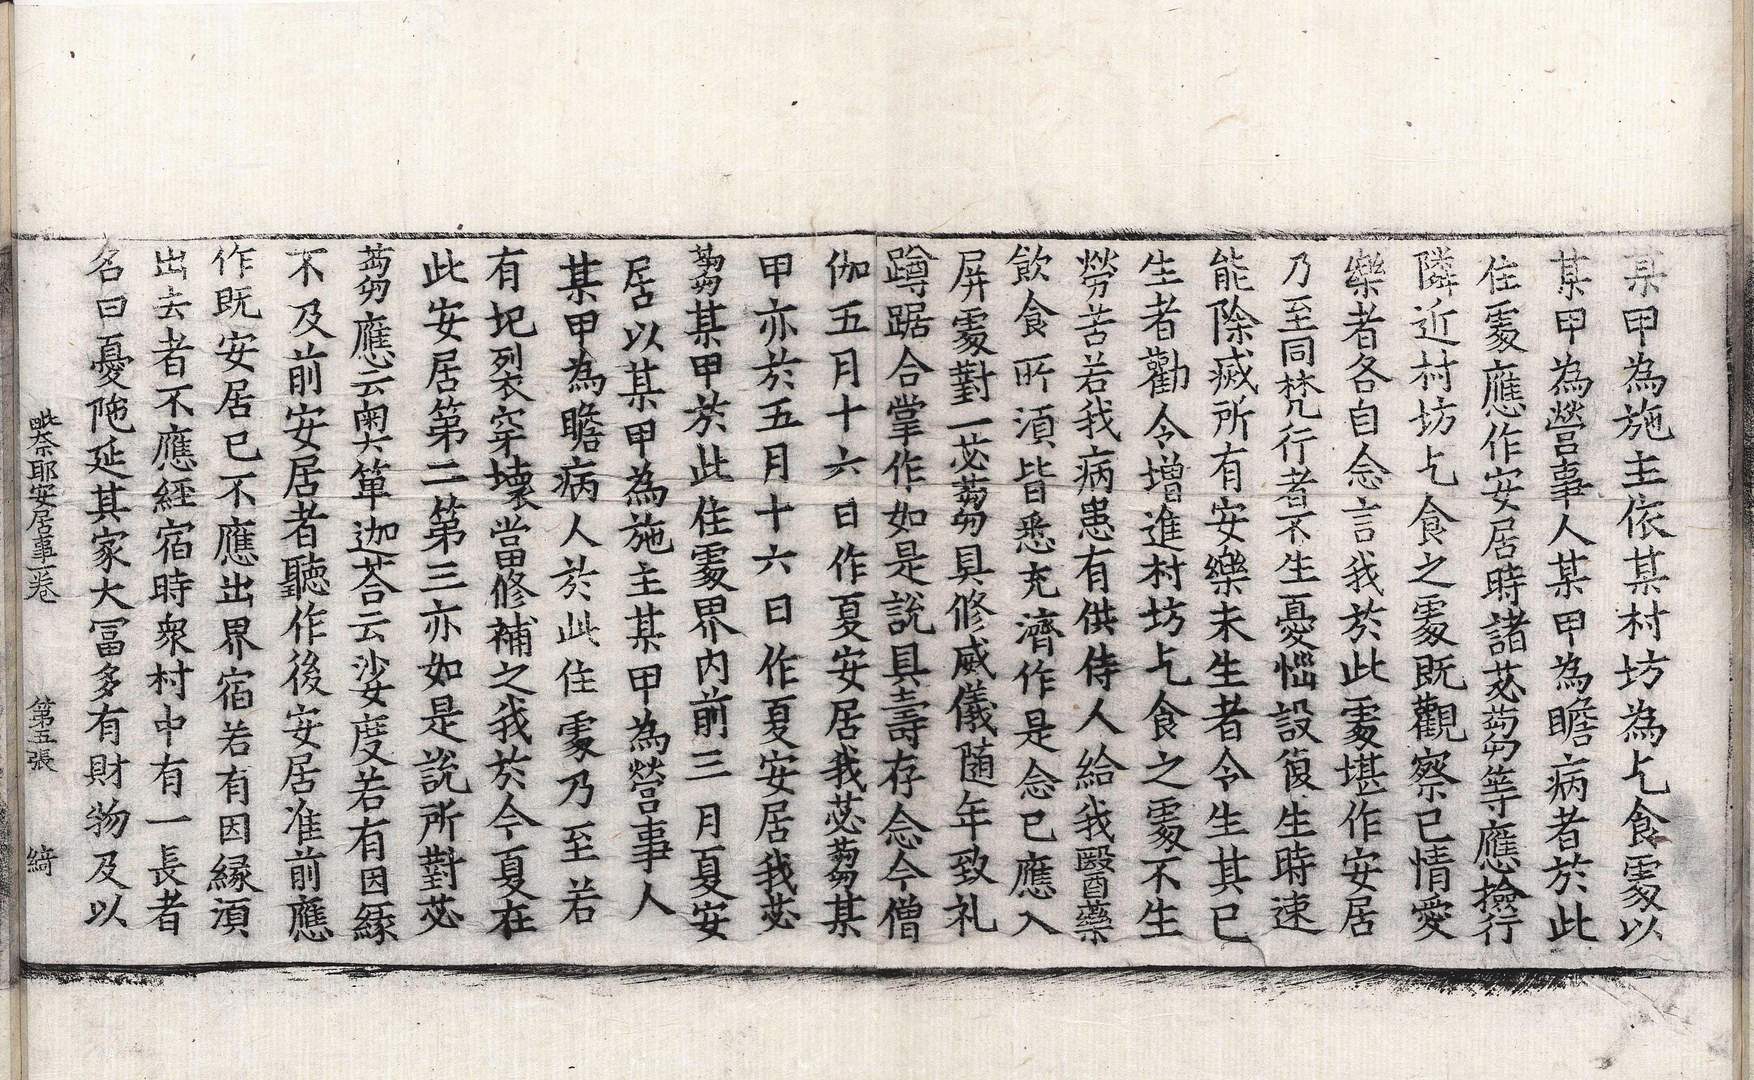 某甲為施主依某村坊為乞食處以
某甲為營事人某甲為瞻病者於此
住處應作安居時諸苾蒭等應撿行
隣近村坊乞食之處既觀察已情愛
樂者各自念言我於此處堪作安居
乃至同梵行者不生憂惱設復生時速
能除滅所有安樂未生者令生其已
生者勸令增進村坊乞食之處不生
勞苦若我病患有供侍人給我醫藥
飲食所湏皆悉充濟作是念已應入
屏處對一苾蒭具修威儀随年致礼
蹲踞合掌作如是說具壽存念今僧
伽五月十六日作夏安居我苾蒭某
甲亦於五月十六日作夏安居我苾
蒭某甲於此住處界內前三月夏安
居以某甲為施主某甲為營事人
某甲為瞻病人於此住處乃至若
有圯裂穿壞當修補之我於今夏在
此安居第二第三亦如是說所對苾
蒭應云奧箄迦荅云娑度若有因緣
不及前安居者聽作後安居准前應
作既安居已不應出界宿若有因緣湏
出去者不應經宿時衆村中有一長者
名曰憂陁延其家大冨多有財物及以
毗奈耶安居事一卷　第五張　綺